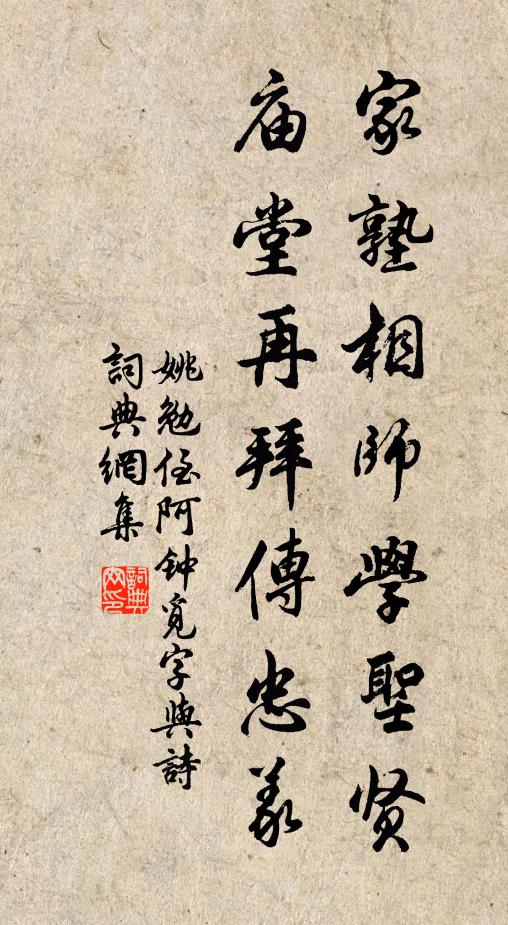 家塾相师學聖贤
庙堂再拜傳忠义
姚勉侄阿钟觅字與詩
詞典網集
詞典